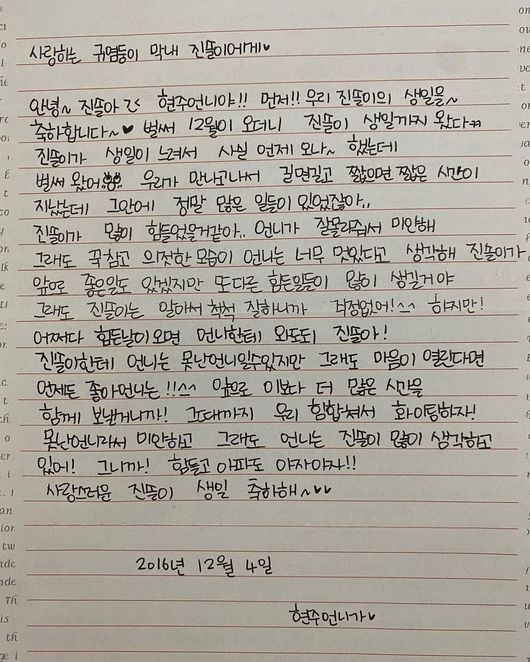 사랑하는 귀염둥이 막내 진뜰이에게♥
안녕~ 진뜰아 현주언니야!! 먼저!! 우리 진뜰이의 생일을~
축하합니다~♥ 벌써 12월이 오더니 진뜰이 생일까지 왔다
진뜰이가 생일이 느려서 사실 언제 오나~ 했는데
벌써 왔어 우리가 만나고나서 길면길고 짧으면 짧은 시간이
지났는데 그안에 정말 많은 일들이 있었잖아..
진뜰이가 많이 힘들었을거같아.. 언니가 잘몰라줘서 미안해
그래도 꾹참고 의젓한 모습이 언니는 너무 멋있다고 생각해 진뜰이가
앞으로 좋은일도 있겠지만 또다른 힘든일들이 많이 생길거야
그래도 진뜰이는 알아서 척척 잘하니까 걱정없어!^^ 하지만!
어쩌다 힘든날이오면 언니한테 와도돼 진뜰아!
진뜰이한테 언니는 못난언니일수있지만 그래도 마음이 열린다면
언제든 좋아언니는!!^^ 앞으로 이보다 더 많은 시간을
함께 보낼거니까! 그때까지 우리 힘합쳐서 화이팅하자!
못난언니라서 미안하고 그래도 언니는 진뜰이 많이 생각하고
있어! 그니까! 힘들고 아파도 아자아자!!
사랑스러운 진뜰이 생일 축하해~♥♥
2016년 12월 4일
현주언니가♥